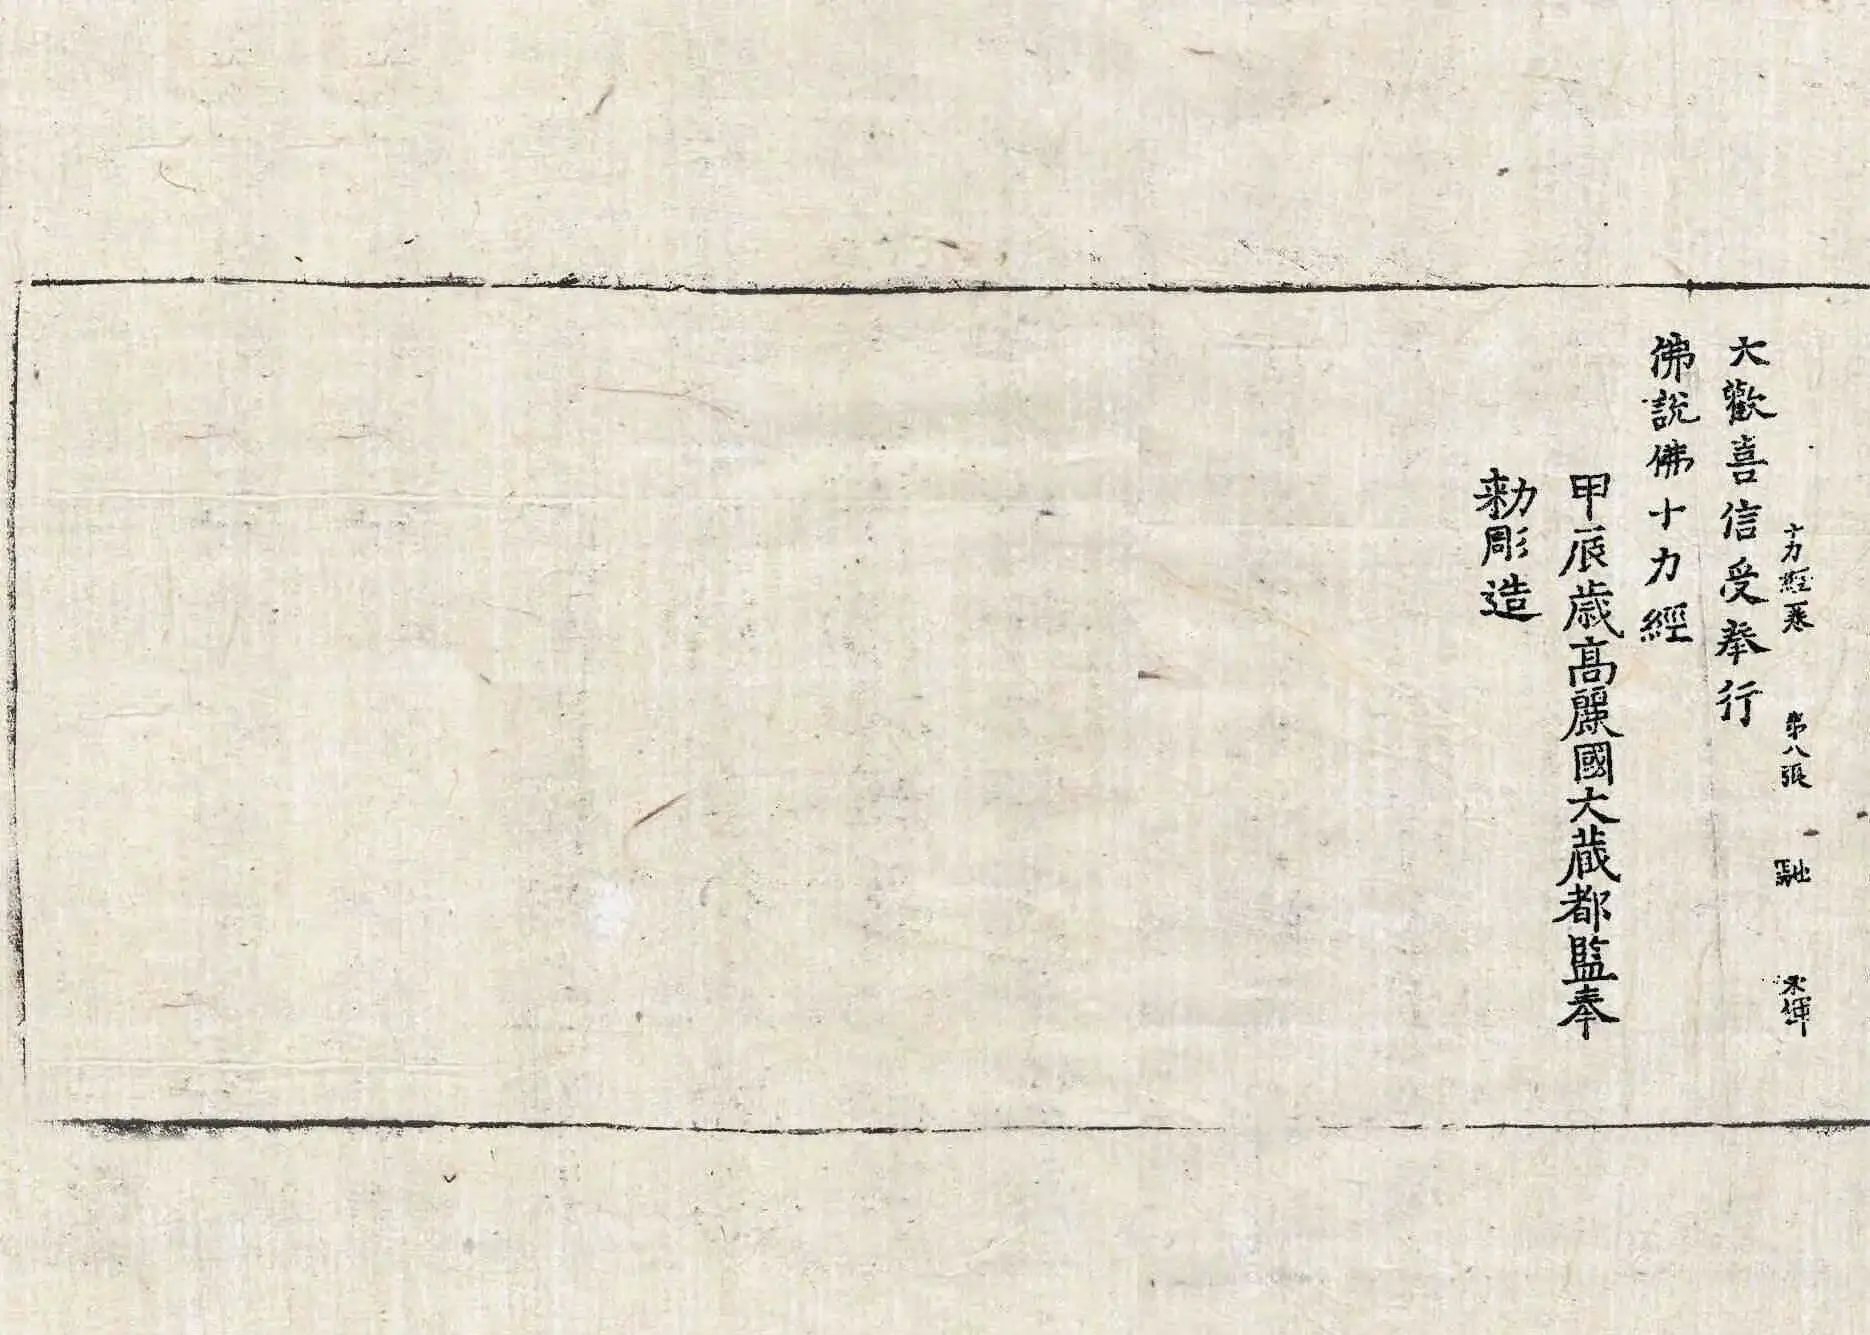 十力經卷 第八張 馳
大歡喜信受奉行
佛說佛十力經
甲辰歲高麗國大藏都監奉
勑彫造